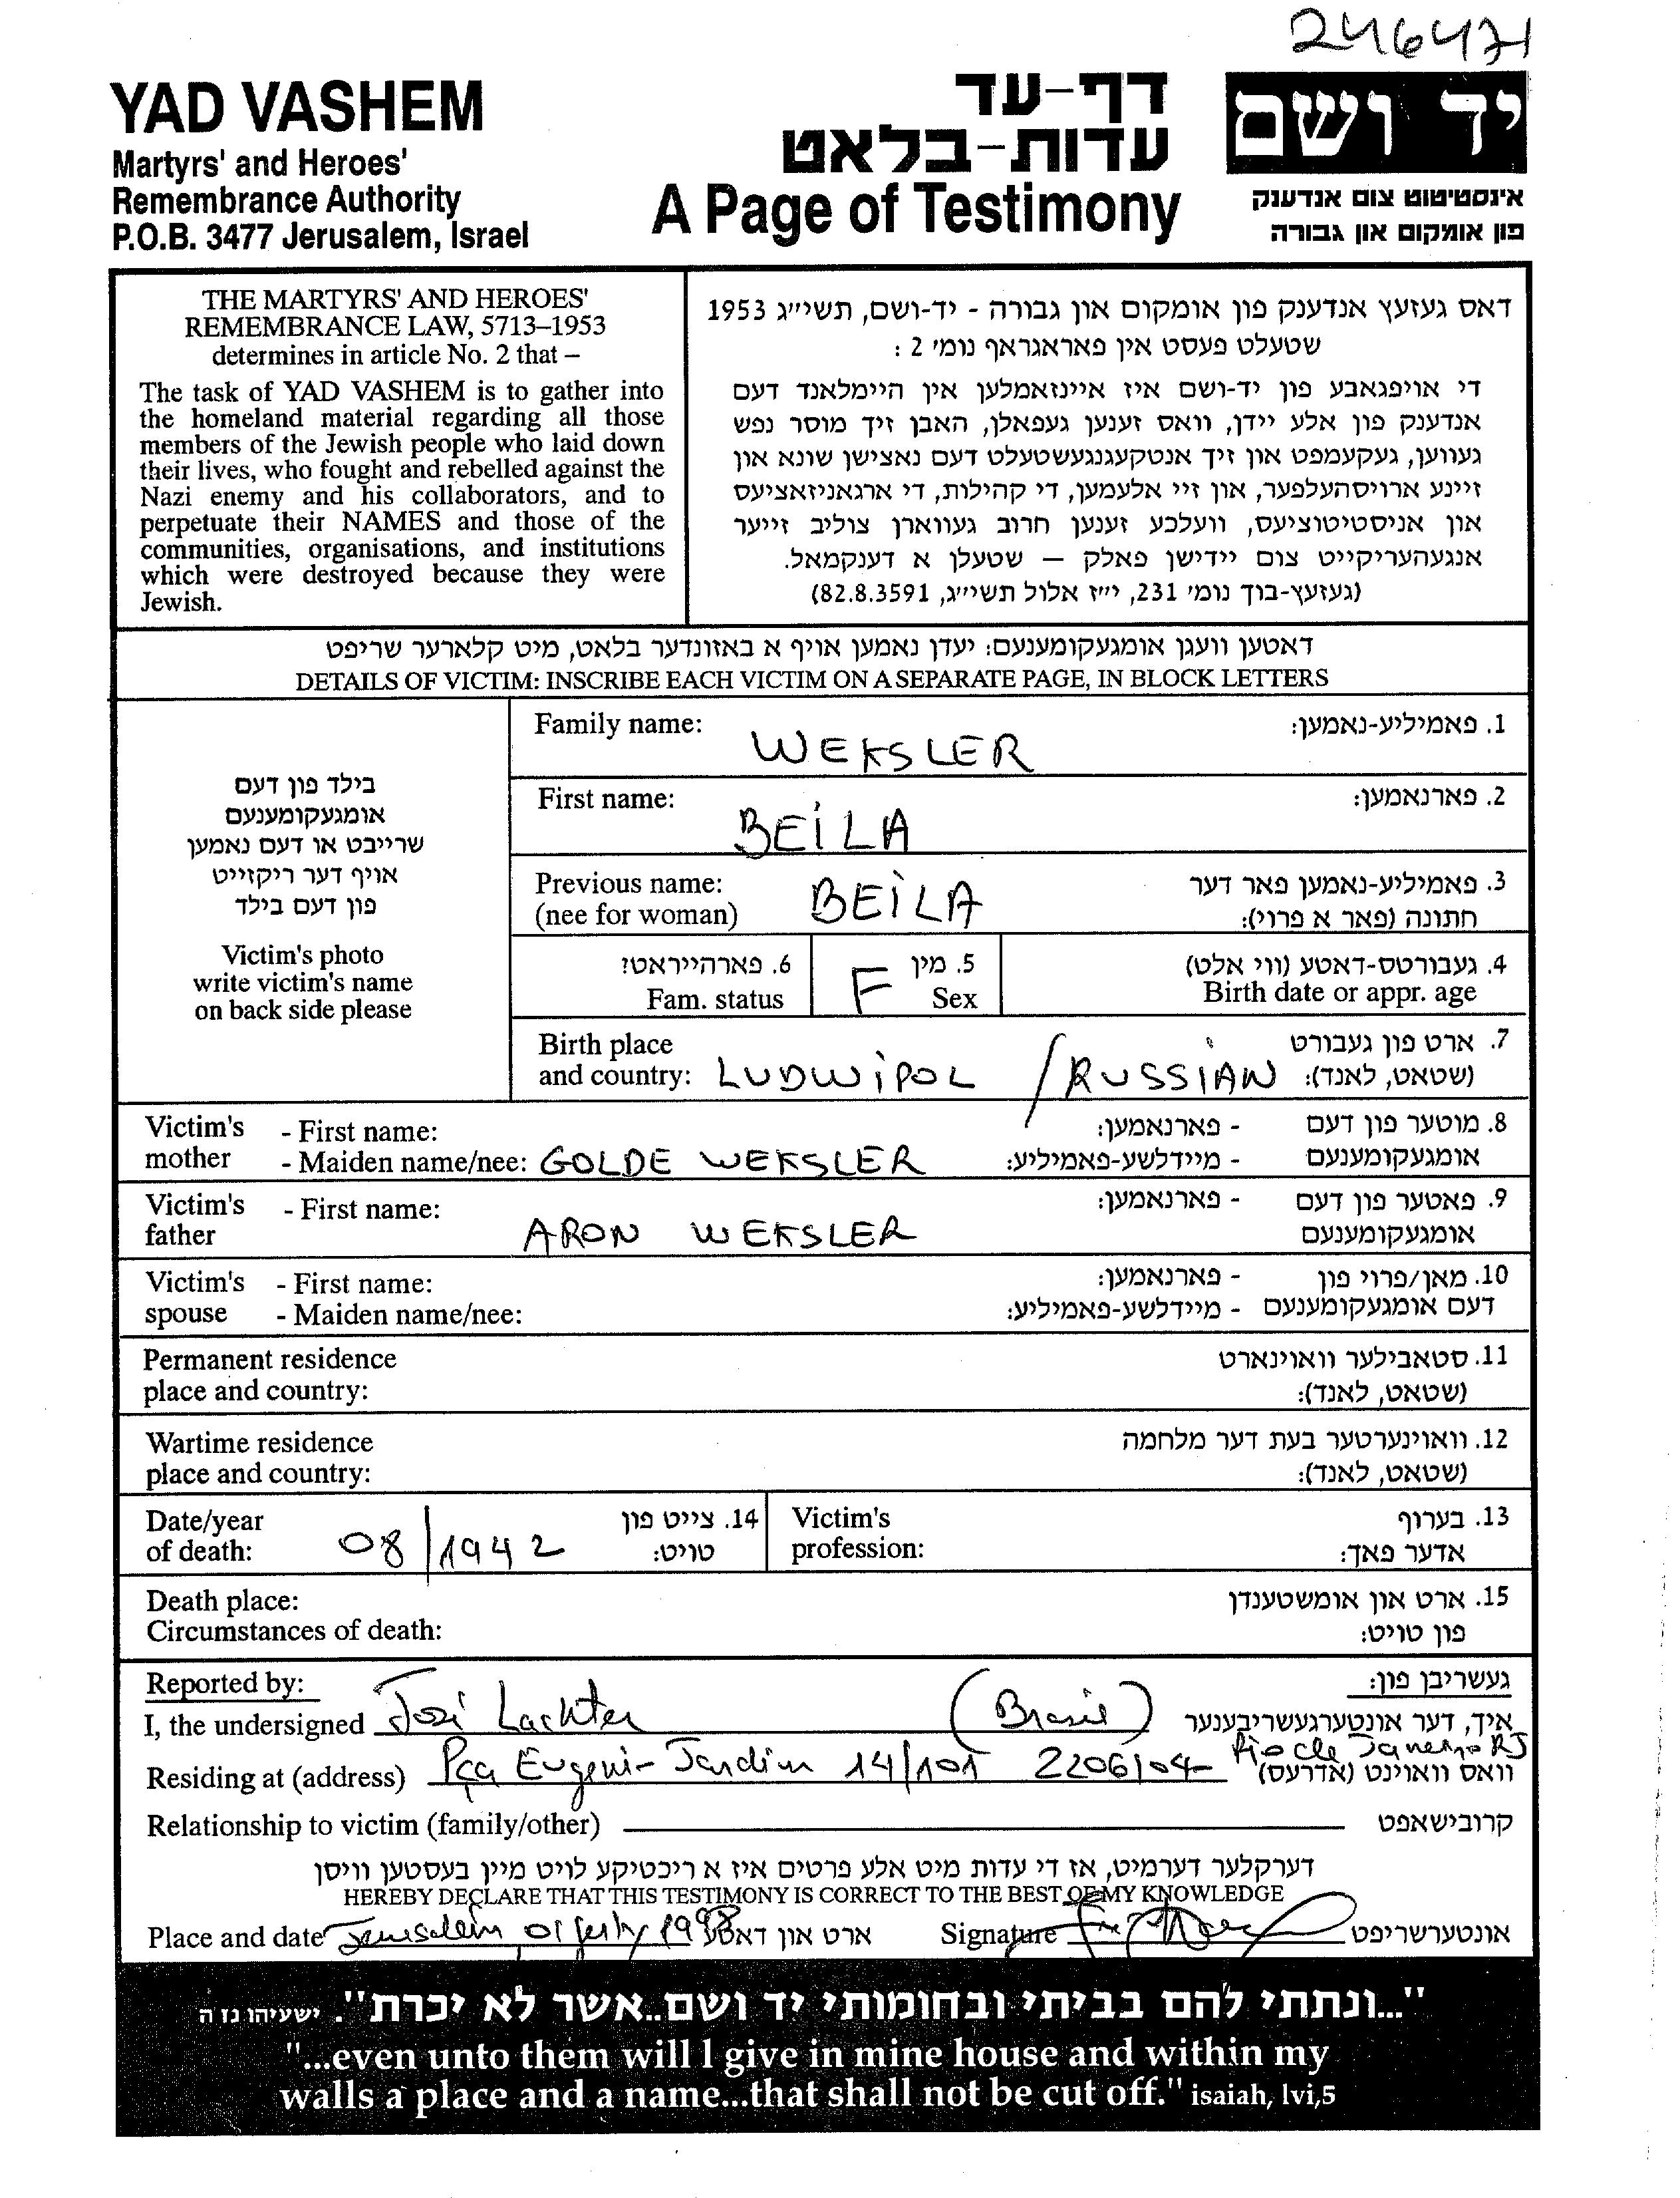 246471
YAD VASHEM
Martyrs' and Heroes'
Remembrance Authority
P.O.B. 3477 Jerusalem, Israel
דף-עד
עדות-בלאט
A Page of Testimony
יד ושם
אינסטיטוט צום אנדענק
פון אומקום און גבורה
THE MARTYRS' AND HEROES'
REMEMBRANCE LAW, 5713–1953
determines in article No. 2 that –
The task of YAD VASHEM is to gather into
the homeland material regarding all those
members of the Jewish people who laid down
their lives, who fought and rebelled against the
Nazi enemy and his collaborators, and to
perpetuate their NAMES and those of the
communities, organisations, and institutions
which were destroyed because they were
Jewish.
דאס געזעץ אנדענק פון אומקום און גבורה - יד-ושם, תשי״ג 1953
שטעלט פעסט אין פאראגראף נומ׳ 2 :
די אויפגאבע פון יד-ושם איז איינזאמלען אין היימלאנד דעם
אנדענק פון אלע יידן, וואס זענען געפאלן, האבן זיך מוסר נפש
געווען, געקעמפט און זיך אנטקעגנגעשטעלט דעם נאצישן שונא און
זיינע ארויסהעלפער, און זיי אלעמען, די קהילות, די ארגאניזאציעס
און אניסטיטוציעס, וועלכע זענען חרוב געווארן צוליב זייער
אנגעהעריקייט צום יידישן פאלק — שטעלן א דענקמאל.
(געזעץ-בוך נומ׳ 231, י״ז אלול תשי״ג, 82.8.3591)
דאטען וועגן אומגעקומענעם: יעדן נאמען אויף א באזונדער בלאט, מיט קלארער שריפט
DETAILS OF VICTIM: INSCRIBE EACH VICTIM ON A SEPARATE PAGE, IN BLOCK LETTERS
בילד פון דעם
אומגעקומענעם
שרייבט או דעם נאמען
אויף דער ריקזייט
פון דעם בילד
Victim's photo
write victim's name
on back side please
Family name: WEKSLER 1. פאמיליע-נאמען:
First name: BEILA 2. פארנאמען:
Previous name: BEILA 3. פאמיליע-נאמען פאר דער
(nee for woman) חתונה (פאר א פרוי):
6. פארהייראט? 5. מין 4. געבורטס-דאטע (ווי אלט)
Fam. status F Sex Birth date or appr. age
Birth place 7. ארט פון געבורט
and country: LUDWIPOL / RUSSIAN (שטאט, לאנד):
Victim's - First name: - פארנאמען: 8. מוטער פון דעם
mother - Maiden name/nee: GOLDE WEKSLER - מיידלשע-פאמיליע: אומגעקומענעם
Victim's - First name: - פארנאמען: 9. פאטער פון דעם
father ARON WEKSLER אומגעקומענעם
Victim's - First name: - פארנאמען: 10. מאן/פרוי פון
spouse - Maiden name/nee: - מיידלשע-פאמיליע: דעם אומגעקומענעם
Permanent residence 11. סטאבילער וואוינארט
place and country: (שטאט, לאנד):
Wartime residence 12. וואוינערטער בעת דער מלחמה
place and country: (שטאט, לאנד):
Date/year 14. צייט פון Victim's 13. בערוף
of death: 08/1942 טויט: profession: אדער פאך:
Death place: 15. ארט און אומשטענדן
Circumstances of death: פון טויט:
Reported by: געשריבן פון:
I, the undersigned José Lachter (Brasil) איך, דער אונטערגעשריבענער
Rio de Janeiro RJ
Residing at (address) Pça Eugeni- Jardim 14/101 2206104- וואס וואוינט (אדרעס)
Relationship to victim (family/other) קרובישאפט
דערקלער דערמיט, אז די עדות מיט אלע פרטים איז א ריכטיקע לויט מיין בעסטען וויסן
HEREBY DECLARE THAT THIS TESTIMONY IS CORRECT TO THE BEST OF MY KNOWLEDGE
Place and date Jerusalem, 01 1998 ארט און דאטע Signature אונטערשריפט
"...ונתתי להם בביתי ובחומותי יד ושם..אשר לא יכרת". ישעיהו נז ה
"...even unto them will I give in mine house and within my
walls a place and a name...that shall not be cut off." isaiah, lvi,5